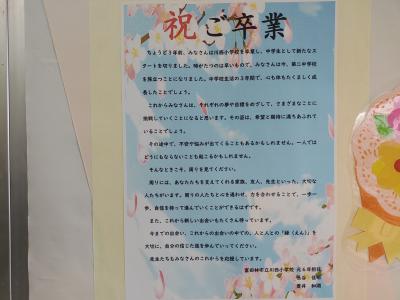 祝ご卒業
ちょうど3年前、みなさんは川西小学校を卒業し、中学生として新たなス
タートを切りました。時がたつのは早いもので、みなさんは今、第二中学校
を旅立つことになりました。中学校生活の3年間で、心も体もたくましく成
長したことでしょう。
これからみなさんは、それぞれの夢や目標をめざして、さまざまなことに
挑戦していくことになると思います。その姿は、希望と期待に満ちあふれて
いることでしょう。
その途中で、不安や悩みが出てくることもあるかもしれません。一人では
どうにもならないことも起こるかもしれません。
そんなときこそ、周りを見てください。
周りには、あなたたちを支えてくれる家族、友人、先生といった、大切な
人たちがいます。周りの人たちと心を通わせ、力を合わせることで、一歩一
歩、自信を持って進んでいくことができるはずです。
また、これから新しい出会いもたくさん待っています。
今までの出会い、これからの出会いの中での、人と人との「縁(えん)」を
大切に、自分の信じた道を歩んでいってください。
先生たちもみなさんのこれからを応援しています。
富田林市立川西小学校 元6年担任